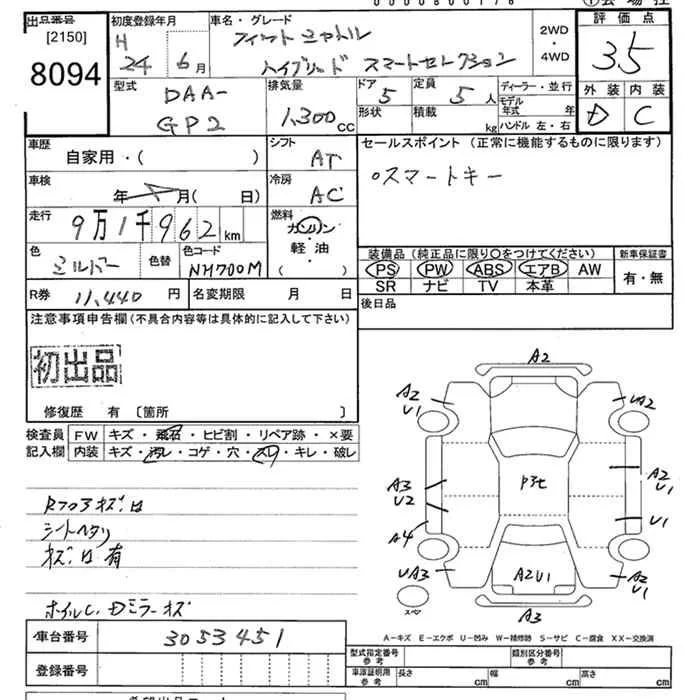 出品番号
[2150]
8094
初度登録年月
H
24 6月
車名・グレード
ハイブリッド スマートセレクション
2WD
・
4WD
評価点
3.5
外装 内装
D C
型式
DAA-
GP2
排気量
1,300cc
ドア
5
形状
定員
5人
積載
kg
ディーラー・並行
モデル年式 年
ハンドル 左・右
車歴
自家用・( )
シフト
AT
セールスポイント(正常に機能するものに限ります)
○スマートキー
車検
年 月( 日)
冷房
AC
走行
9万1千962km
燃料
ガソリン
・
軽・油
( )
色
シルバー
色替
色コード
NH700M
装備品(純正品に限り○をつけてください)
新車保証書
PS PW ABS エアB AW
SR ナビ TV 本革
有・無
R券 11,440円
名変期限 月 日
後日品
注意事項申告欄(不具合内容等は具体的に記入して下さい)
初出品
修復歴 有 〔箇所 〕
検査員 FW キズ・飛石・ヒビ割・リペア跡・×要
記入欄 内装 キズ・汚レ・コゲ・穴・スレ・キレ・破レ
シートヘタリ
キズ凹有
A2
A2
U1
UA2
A3
U2
A2
U1
U1
A4
UA3
A2U1
A2
U1
A3
スペア
A-キズ E-エクボ U-凹み W-補修跡 S-サビ C-腐食 XX-交換済
車台番号 3053451
登録番号
型式指定番号
参考
類別区分番号
参考
車庫証明用
参考
長さ cm
幅 cm
高さ cm